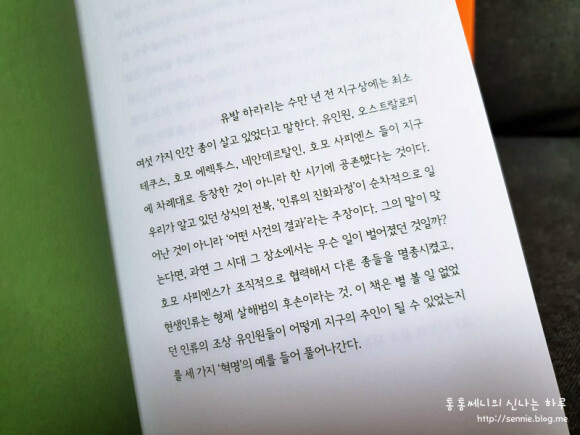 유발 하라리는 수만 년 전 지구상에는 최소
여섯 가지 인간 종이 살고 있었다고 말한다. 유인원, 오스트랄로피
테쿠스, 호모 에렉투스, 네안데르탈인, 호모 사피엔스 들이 지구
에 차례대로 등장한 것이 아니라 한 시기에 공존했다는 것이다.
우리가 알고 있던 상식의 전복, ‘인류의 진화과정’이 순차적으로 일
어난 것이 아니라 ‘어떤 사건의 결과’라는 주장이다. 그의 말이 맞
는다면, 과연 그 시대 그 장소에서는 무슨 일이 벌어졌던 것일까?
호모 사피엔스가 조직적으로 협력해서 다른 종들을 멸종시켰고,
현생인류는 형제 살해범의 후손이라는 것. 이 책은 별 볼 일 없었
던 인류의 조상 유인원들이 어떻게 지구의 주인이 될 수 있었는지
를 세 가지 ‘혁명’의 예를 들어 풀어나간다.
통통쎄니의 신나는 하루
http://sennie.blog.me